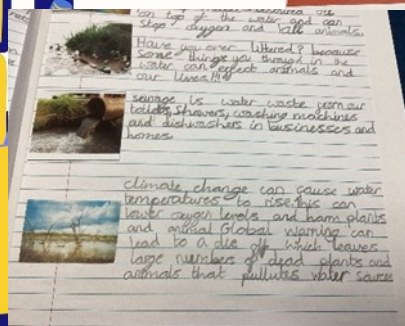 on top of the water and can
stop oxygen and kill animals.
Have you ever littered? because
some things you through in the
water can effect animals and
our lives!!!
sewage is water waste from our
toilets, showers, washing machines
and dishwashers in businesses and
homes
climate change can cause water
temperatures to rise, this can
lower oxygen levels and harm plants
and animal Global warning can
lead to a die off which leaves
large numbers of dead plants and
animals that pullutes water sources